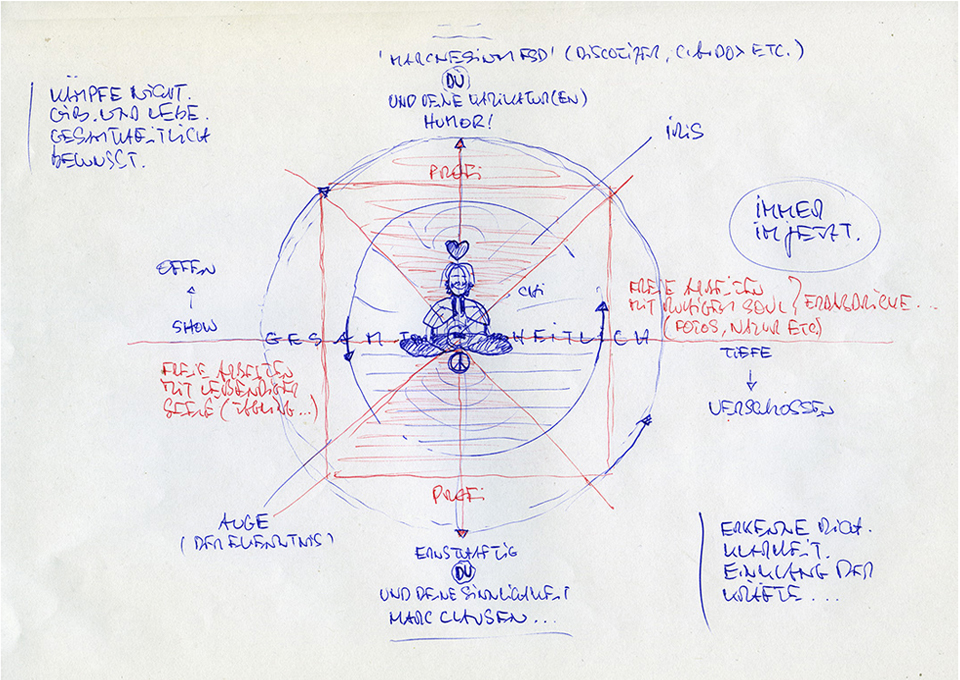 'MARCNESINMESD' (DISCOTIZER, C.A.DOX ETC.)
DU
UND DEINE KARIKATUR(EN)
HUMOR!
KÄMPFE NICHT.
GIB. UND LEBE.
GESAMTHEITLICH
BEWUSST.
IRIS
PROFI
IMMER
IM JETZT.
OFFEN
SHOW
CHI
FREIE ARBEITEN
MIT RUHIGEM SOUL
(FOTOS, NATUR ETC)
GESAMTHEITLICH
TIEFE
VERSCHOSSEN
FREIE ARBEITEN
MIT LEBENDIGER
SEELE
PROFI
AUGE
(DER ERKENNTNIS)
ERNSTHAFTIG
DU
UND DEINE SINNLICHKEIT
MARC CLAUSEN...
ERKENNE DICH.
KLARHEIT.
EINKLANG DER
KRÄFTE...